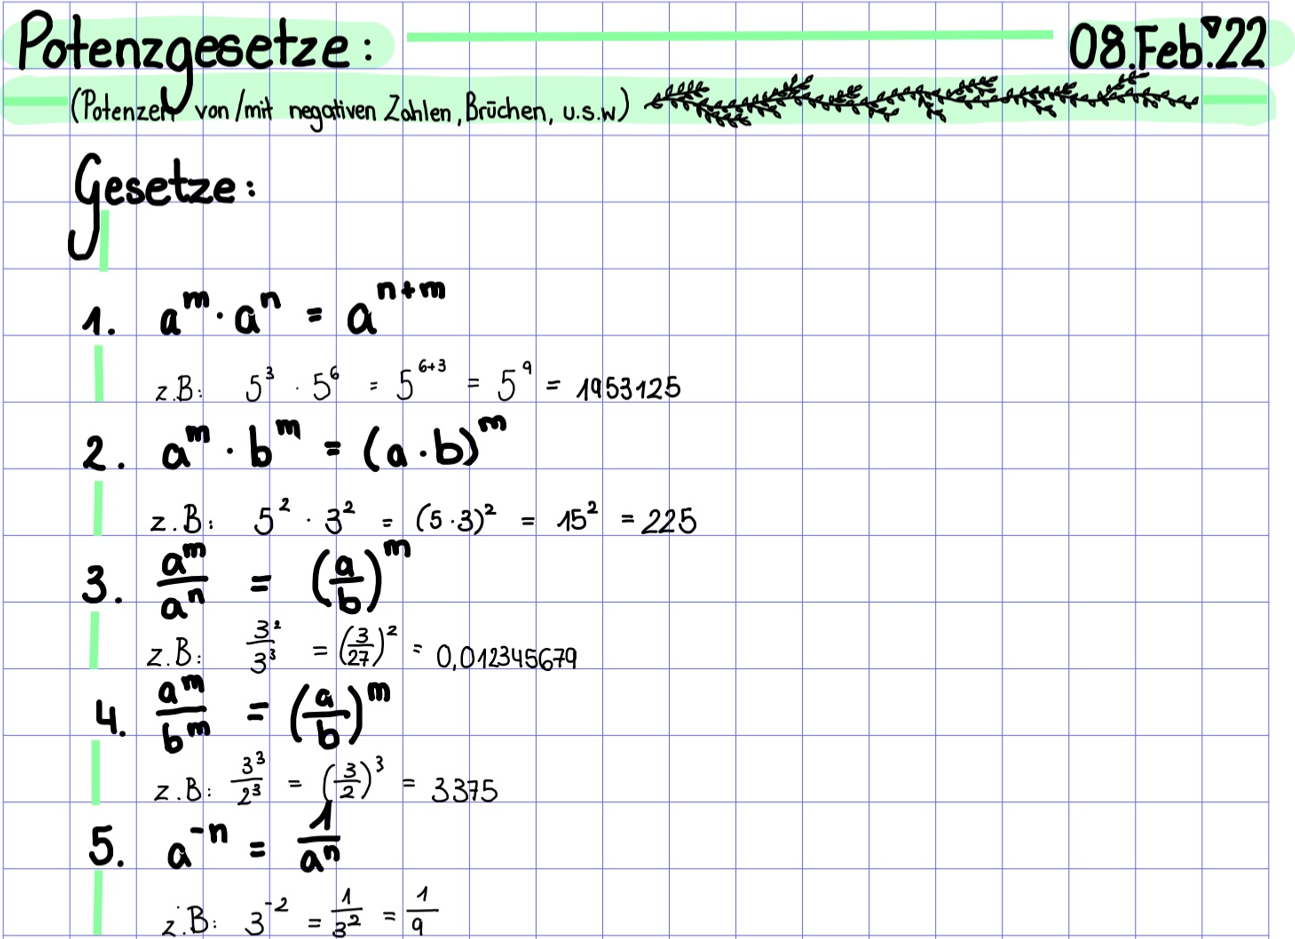 Potenzgesetze: 08.Feb.'22
(Potenzen von/mit negativen Zahlen, Brüchen, u.s.w)
Gesetze:
1. a^m · a^n = a^(n+m)
z.B: 5^3 · 5^6 = 5^(6+3) = 5^9 = 1953125
2. a^m · b^m = (a·b)^m
z.B: 5^2 · 3^2 = (5·3)^2 = 15^2 = 225
3. a^m/a^n = (a/b)^m
z.B: 3^2/3^3 = (3/27)^2 = 0,012345679
4. a^m/b^m = (a/b)^m
z.B: 3^3/2^3 = (3/2)^3 = 3375
5. a^-n = 1/a^n
z.B: 3^-2 = 1/3^2 = 1/9